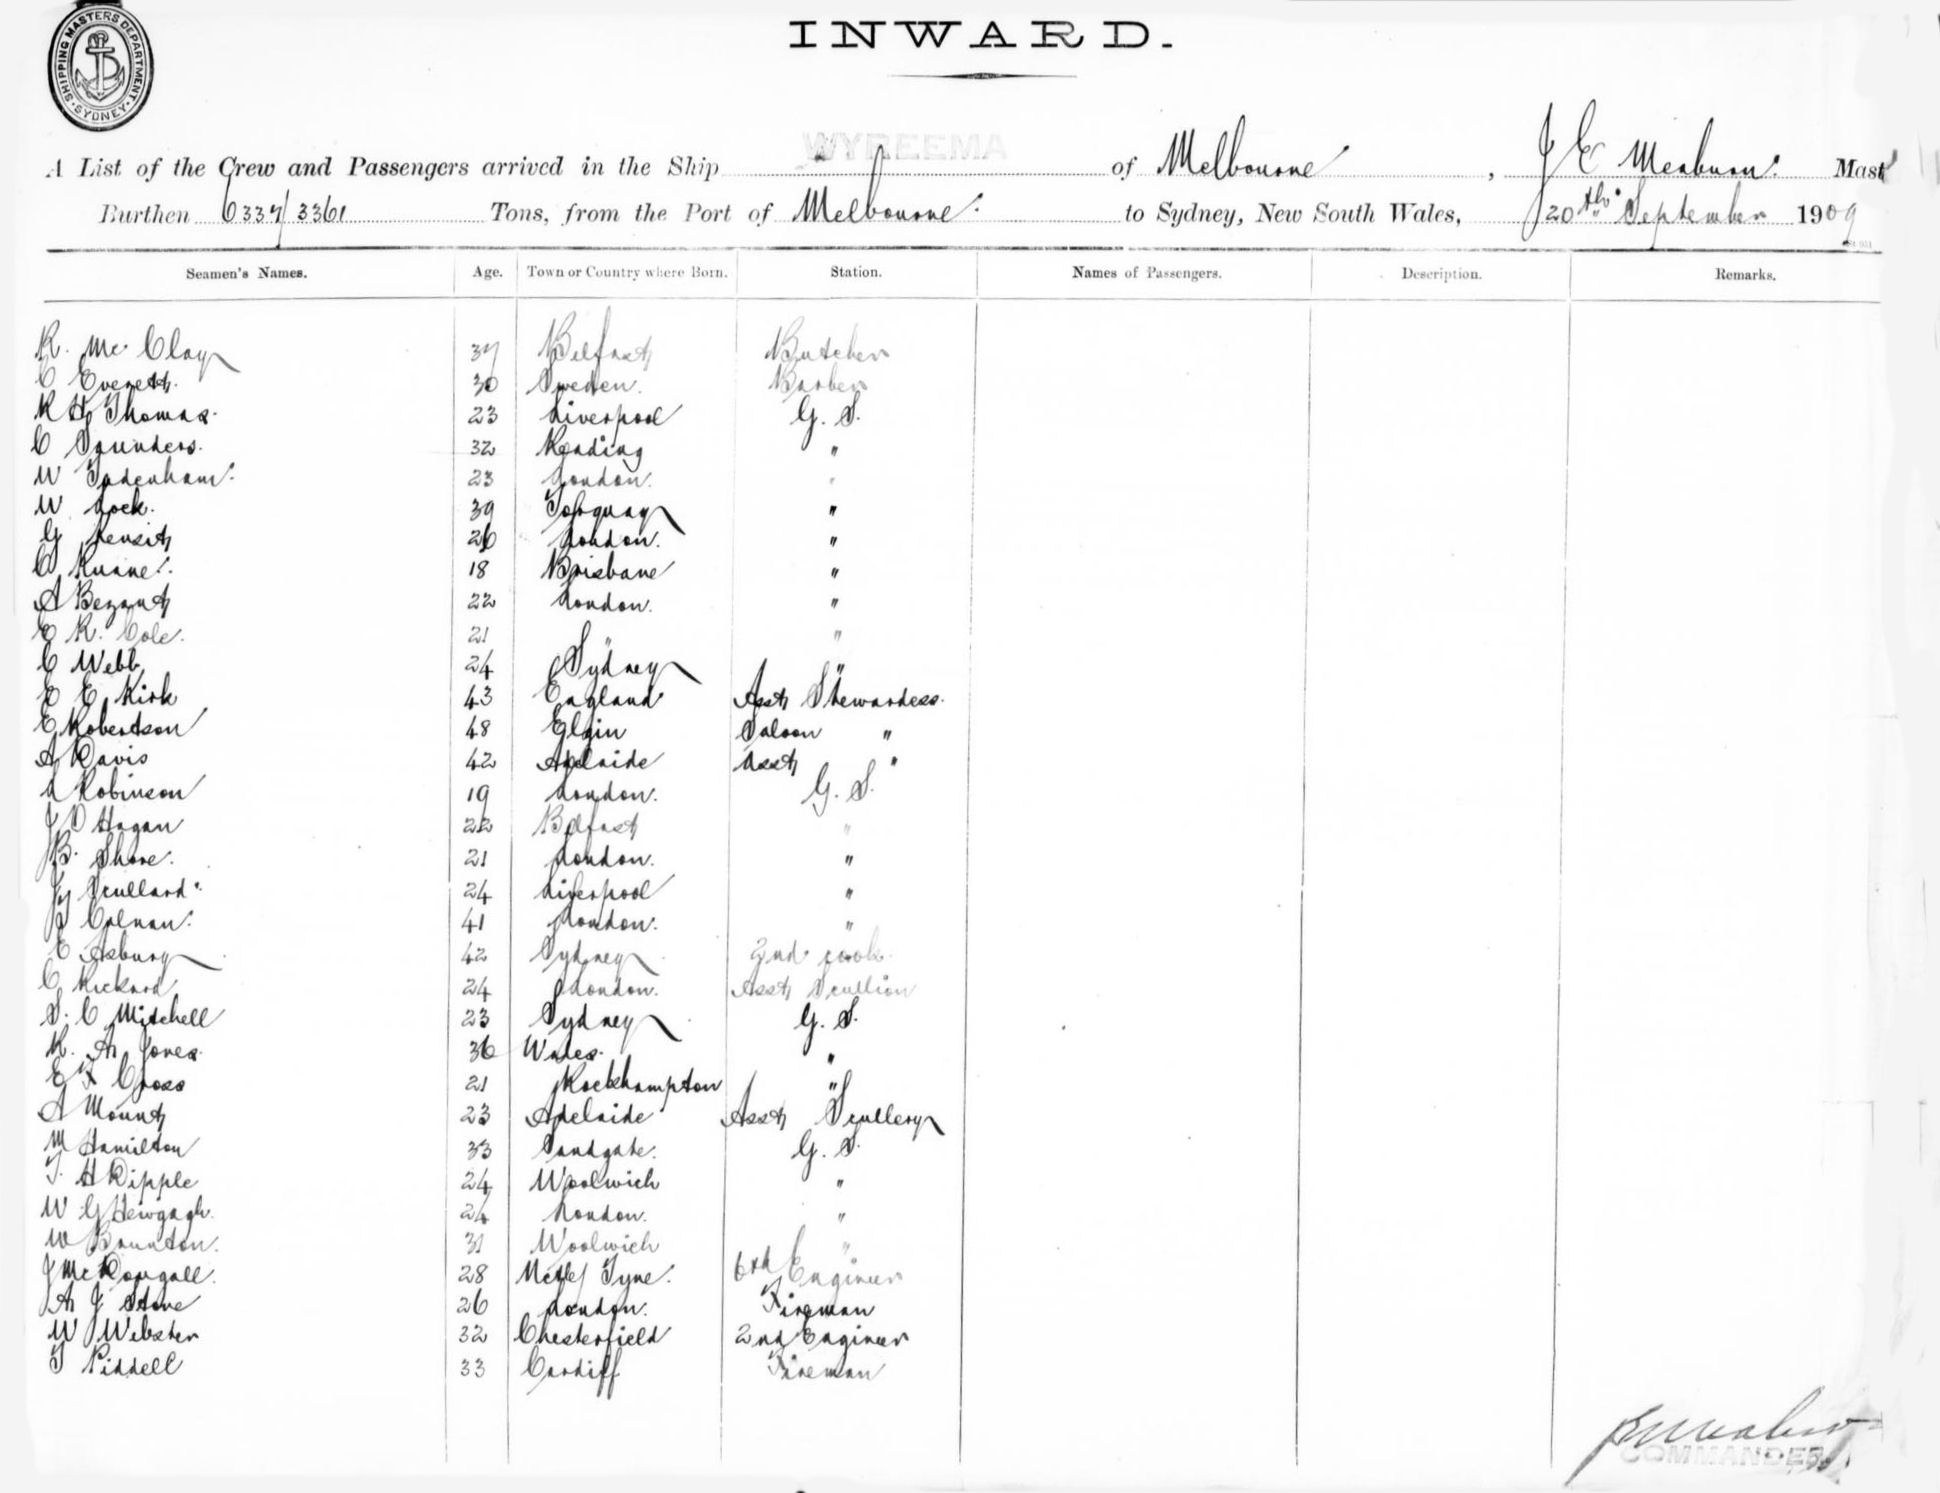 SHIPPING MASTERS DEPARTMENT
SYDNEY
INWARD.
WYREEMA
A List of the Crew and Passengers arrived in the Ship of Melbourne, J E Meaburn. Mast
Burthen 6337/3361 Tons, from the Port of Melbourne. to Sydney, New South Wales, 20th September 1909
Seamen's Names. Age. Town or Country where Born. Station. Names of Passengers. Description. Remarks.
R. Mc Clay 37 Belfast Butcher
C Everett. 30 Sweden. Barber
R H Thomas. 23 Liverpool G. S.
C Saunders. 32 Reading "
W Todenham. 23 London. "
W Lock. 39 Torquay "
G Kensit 26 London. "
C Kunne. 18 Brisbane "
A Bezant 22 London. "
E R. Cole. 21 " "
C Webb 24 Sydney "
E E Kirk 43 England Asst Stewardess.
E Robertson 48 Elgin Saloon "
A Davis 42 Adelaide Asst "
A Robinson 19 London. G. S.
J O Hagan 22 Belfast "
B. Shore. 21 London. "
J Scullard. 24 Liverpool "
J Colman. 41 London. "
E Asbury 42 Sydney 2nd cook.
C Rickard 24 London. Asst Scullion
S. C Mitchell 23 Sydney G. S.
R. A Jones. 36 Wales. "
E F Cross 21 Rockhampton "
A Mount 23 Adelaide Asst Scullery
M Hamilton 33 Sandgate. G. S.
T. H Dipple 24 Woolwich "
W G 24 London. "
W Braunton. 31 Woolwich "
J McDougall. 28 Nctle/ Tyne. 6th Engineer
A J Stone 26 London. Fireman
W Webster 32 Chesterfield 2nd Engineer
T Piddell 33 Cardiff Fireman
COMMANDER